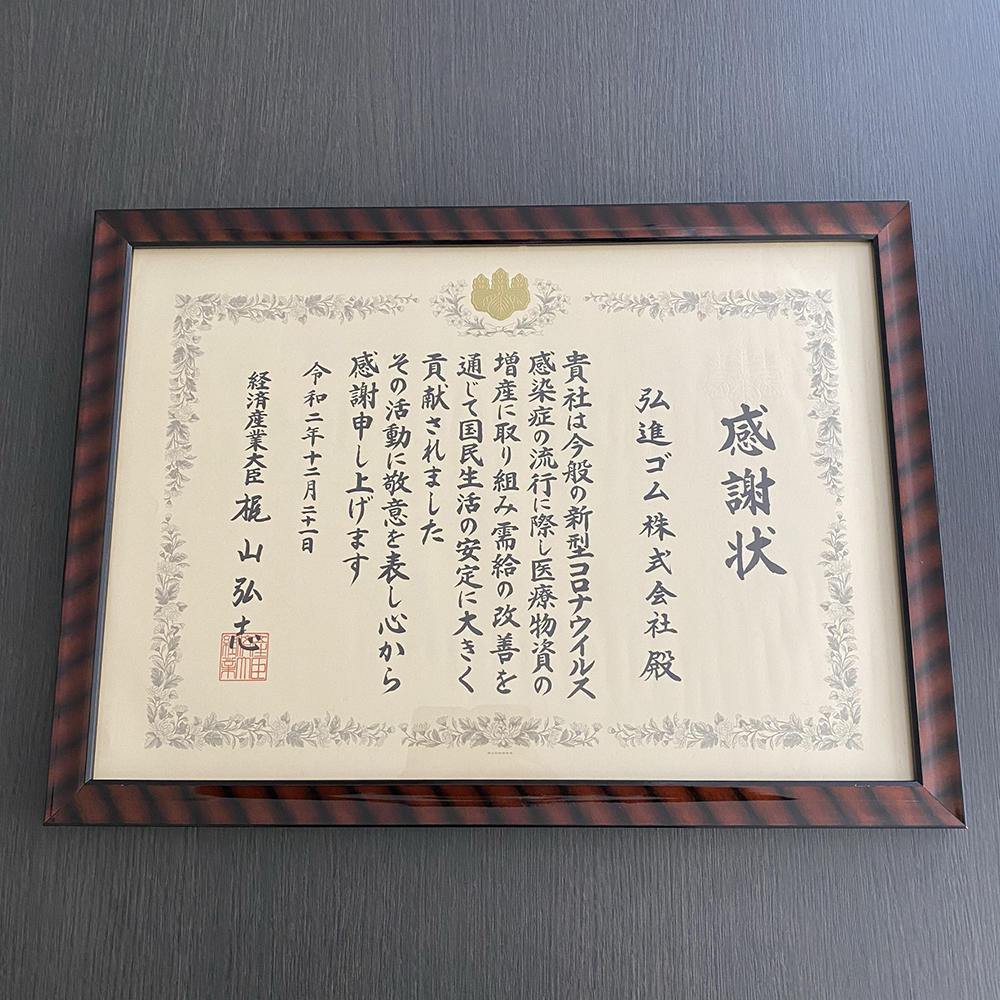 感謝状
弘進ゴム株式会社 殿
貴社は今般の新型コロナウイルス
感染症の流行に際し医療物資の
増産に取り組み需給の改善を
通じて国民生活の安定に大きく
貢献されました
その活動に敬意を表し心から
感謝申し上げます
令和二年十二月二十一日
経済産業大臣 梶山弘志